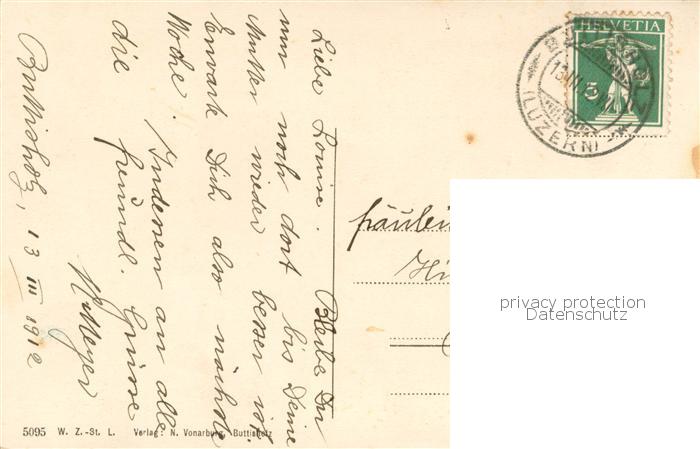 Buttisholz, 13 III 1912
Liebe Louise. Bleibe Du
nur noch dort bis Deine
Mutter wieder besser ist.
Erwarte Dich also nächste
Woche. Indessen an alle
die freundl. Grüsse
Meyer
HELVETIA
5
BUTTISHOLZ
(LUZERN)
Fräulein
privacy protection
Datenschutz
5095 W. Z.-St. L. Verlag: N. Vonarburg, Buttisholz